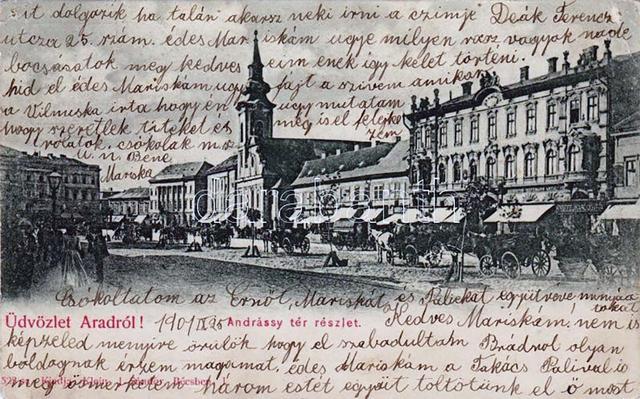 it dolgozik ha talán akarsz neki irni a czimje Deák Ferencz
utcza 25. szám. édes Mariskám ugye milyen rossz vagyok na de
bocsásatok meg kedves eim ének igy kelet történi.
hid el édes Mariskám ugy fajt a szivem amikor
a Vilmuska irta hogy én ugy mutatam
hogy szeretlek titeket és még isel felerkez
zem
rolatok, csókolak
u. n. Bene
Mariska
Csókoltatom az Ernőt, Mariskát és Palieket együtt véve
Üdvözlet Aradról! 1901 IX 25 Andrássy tér részlet. Kedves Mariskám! nem is
képzeled menyire örülök hogy el szabadultam Brádrol olyan
boldognak érzem magamat, édes Mariskám a Takács Palival is
meg ösmerketem három estét együtt töltötünk el ő most